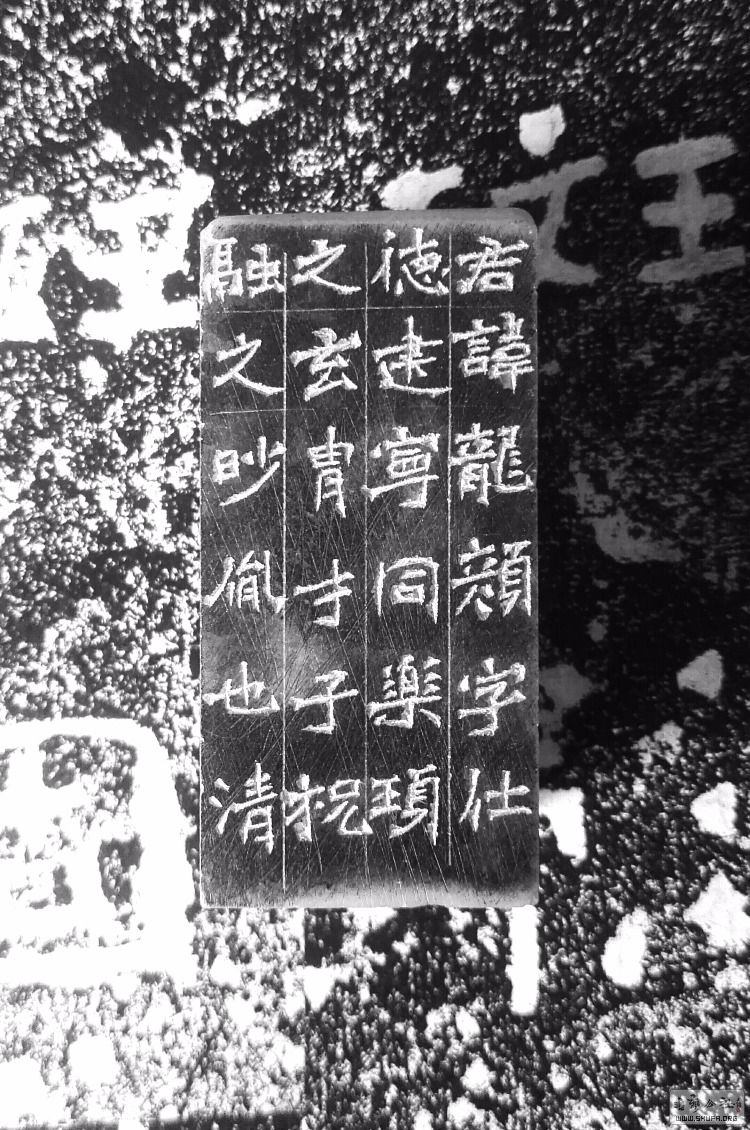 君諱龍顏字仕
德建寧同樂頊
之玄胄才子祝
融之眇胤也清
王
WWW.SHUFA.ORG